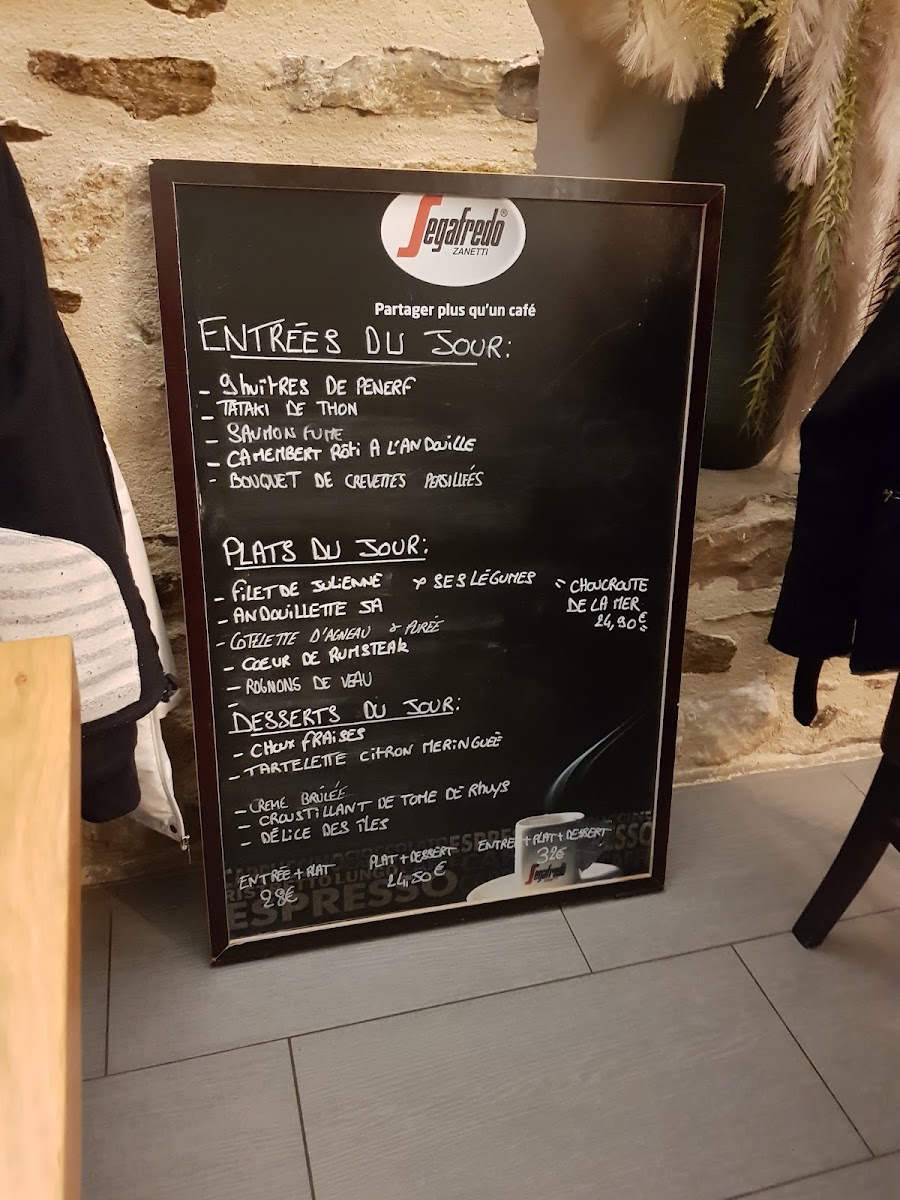 Segafredo®
ZANETTI
Partager plus qu'un café
ENTRÉES DU JOUR:
- 9 huîtRES DE PENERF
- TATAKI DE THON
- SAUMON FUME
- CAMEMBERT RÔTI A L'ANDOUILLE
- BOUQUET DE CREVETTES PERSILLÉES
PLATS DU JOUR:
- FILET DE JULIENNE & SES LÉGUMES
- ANDOUILLETTE 5A
- COTELETTE D'AGNEAU & PURÉE
- COEUR DE RUMSTEAK
- ROGNONS DE VEAU
CHOUCROUTE
DE LA MER
24,90€
DESSERTS DU JOUR:
- CHOUX FRAISES
- TARTELETTE CITRON MERINGUEÉ
- CREME BRÛLÉE
- CROUSTILLANT DE TOME DE RhuyS
- DÉLICE DES ÎLES
ENTRÉE + PLAT
28€
PLAT + DESSERT
24,50€
ENTREE + PLAT + DESSERT
32€
Segafredo
RISTRETTO LUNGO
ESPRESSO